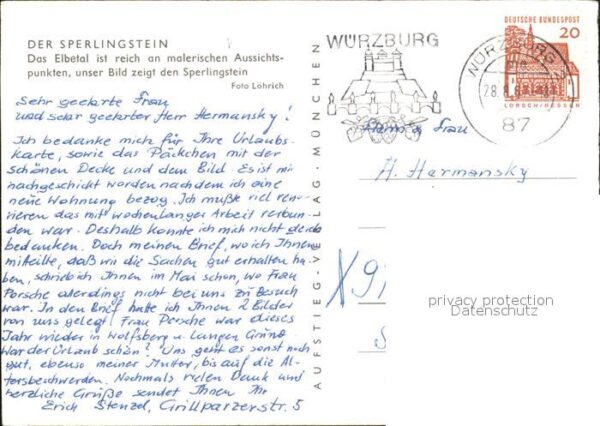 DER SPERLINGSTEIN
Das Elbetal ist reich an malerischen Aussichts-
punkten, unser Bild zeigt den Sperlingstein
Foto Lohrich
Sehr geehrte Frau
und sehr geehrter Herr Hermansky!
Ich bedanke mich für Ihre Urlaubs-
karte, sowie das Päckchen mit der
schönen Decke und dem Bild. Es ist mir
nachgeschickt worden nachdem ich eine
neue Wohnung bezog. Ich mußte viel reno-
vieren das mit wochenlanger Arbeit verbun-
den war. Deshalb konnte ich mich nicht
bedanken. Doch meinen Brief, wo ich Ihnen
mitteilte, daß wir die Sachen gut erhalten ha-
ben, schrieb ich Ihnen im Mai schon, wo Frau
Porsche allerdings nicht bei uns zu Besuch
war. In den Brief hatte ich Ihnen 2 Bilder
von uns gelegt. Frau Porsche war dieses
Jahr wieder in Wolfsberg u. Langen Grund.
War der Urlaub schön? Uns geht es sonst noch
gut, ebenso meiner Mutter, bis auf die Al-
tersbeschwerden. Nochmals vielen Dank und
herzliche Grüße sendet Ihnen Ihr
Erich Stenzel, Grillparzerstr. 5
AUFSTIEG-VERLAG·MÜNCHEN
WÜRZBURG
WÜRZBURG
28.8.6
87
DEUTSCHE BUNDESPOST
20
LORSCH/HESSEN
Herrn & Frau
A. Hermansky
X 91
S
privacy protection
Datenschutz